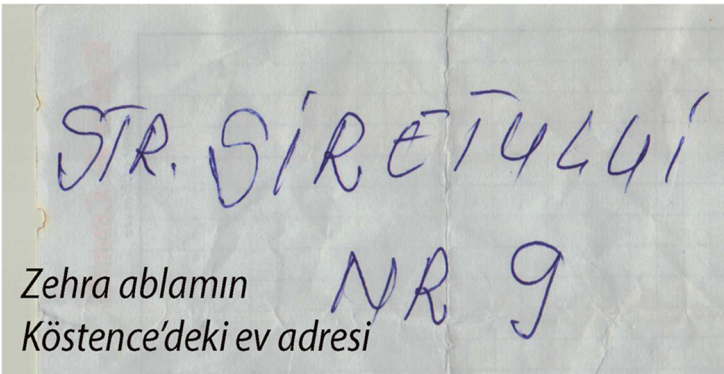 STR. SİRETULUİ
NR 9
Zehra ablamın
Köstence’deki ev adresi